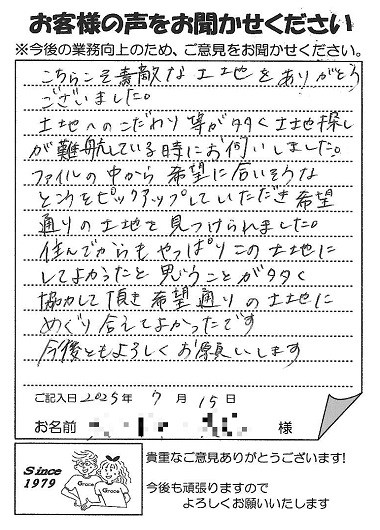 お客様の声をお聞かせください
※今後の業務向上のため、ご意見をお聞かせください。
こちらこそ素敵な土地をありがとう
ございました。
土地へのこだわり等が多く土地探し
が難航している時にお伺いしました。
ファイルの中から希望に合いそうな
ところをピックアップしていただき希望
通りの土地を見つけられました。
住んでからもやっぱりこの土地に
してよかったと思うことが多く
協力して頂き希望通りの土地に
めぐり合えてよかったです
今後ともよろしくお願いします
ご記入日 2025年 7月 15日
お名前 様
Since
1979
Grace
Grace
貴重なご意見ありがとうございます!
今後も頑張りますので
よろしくお願いいたします